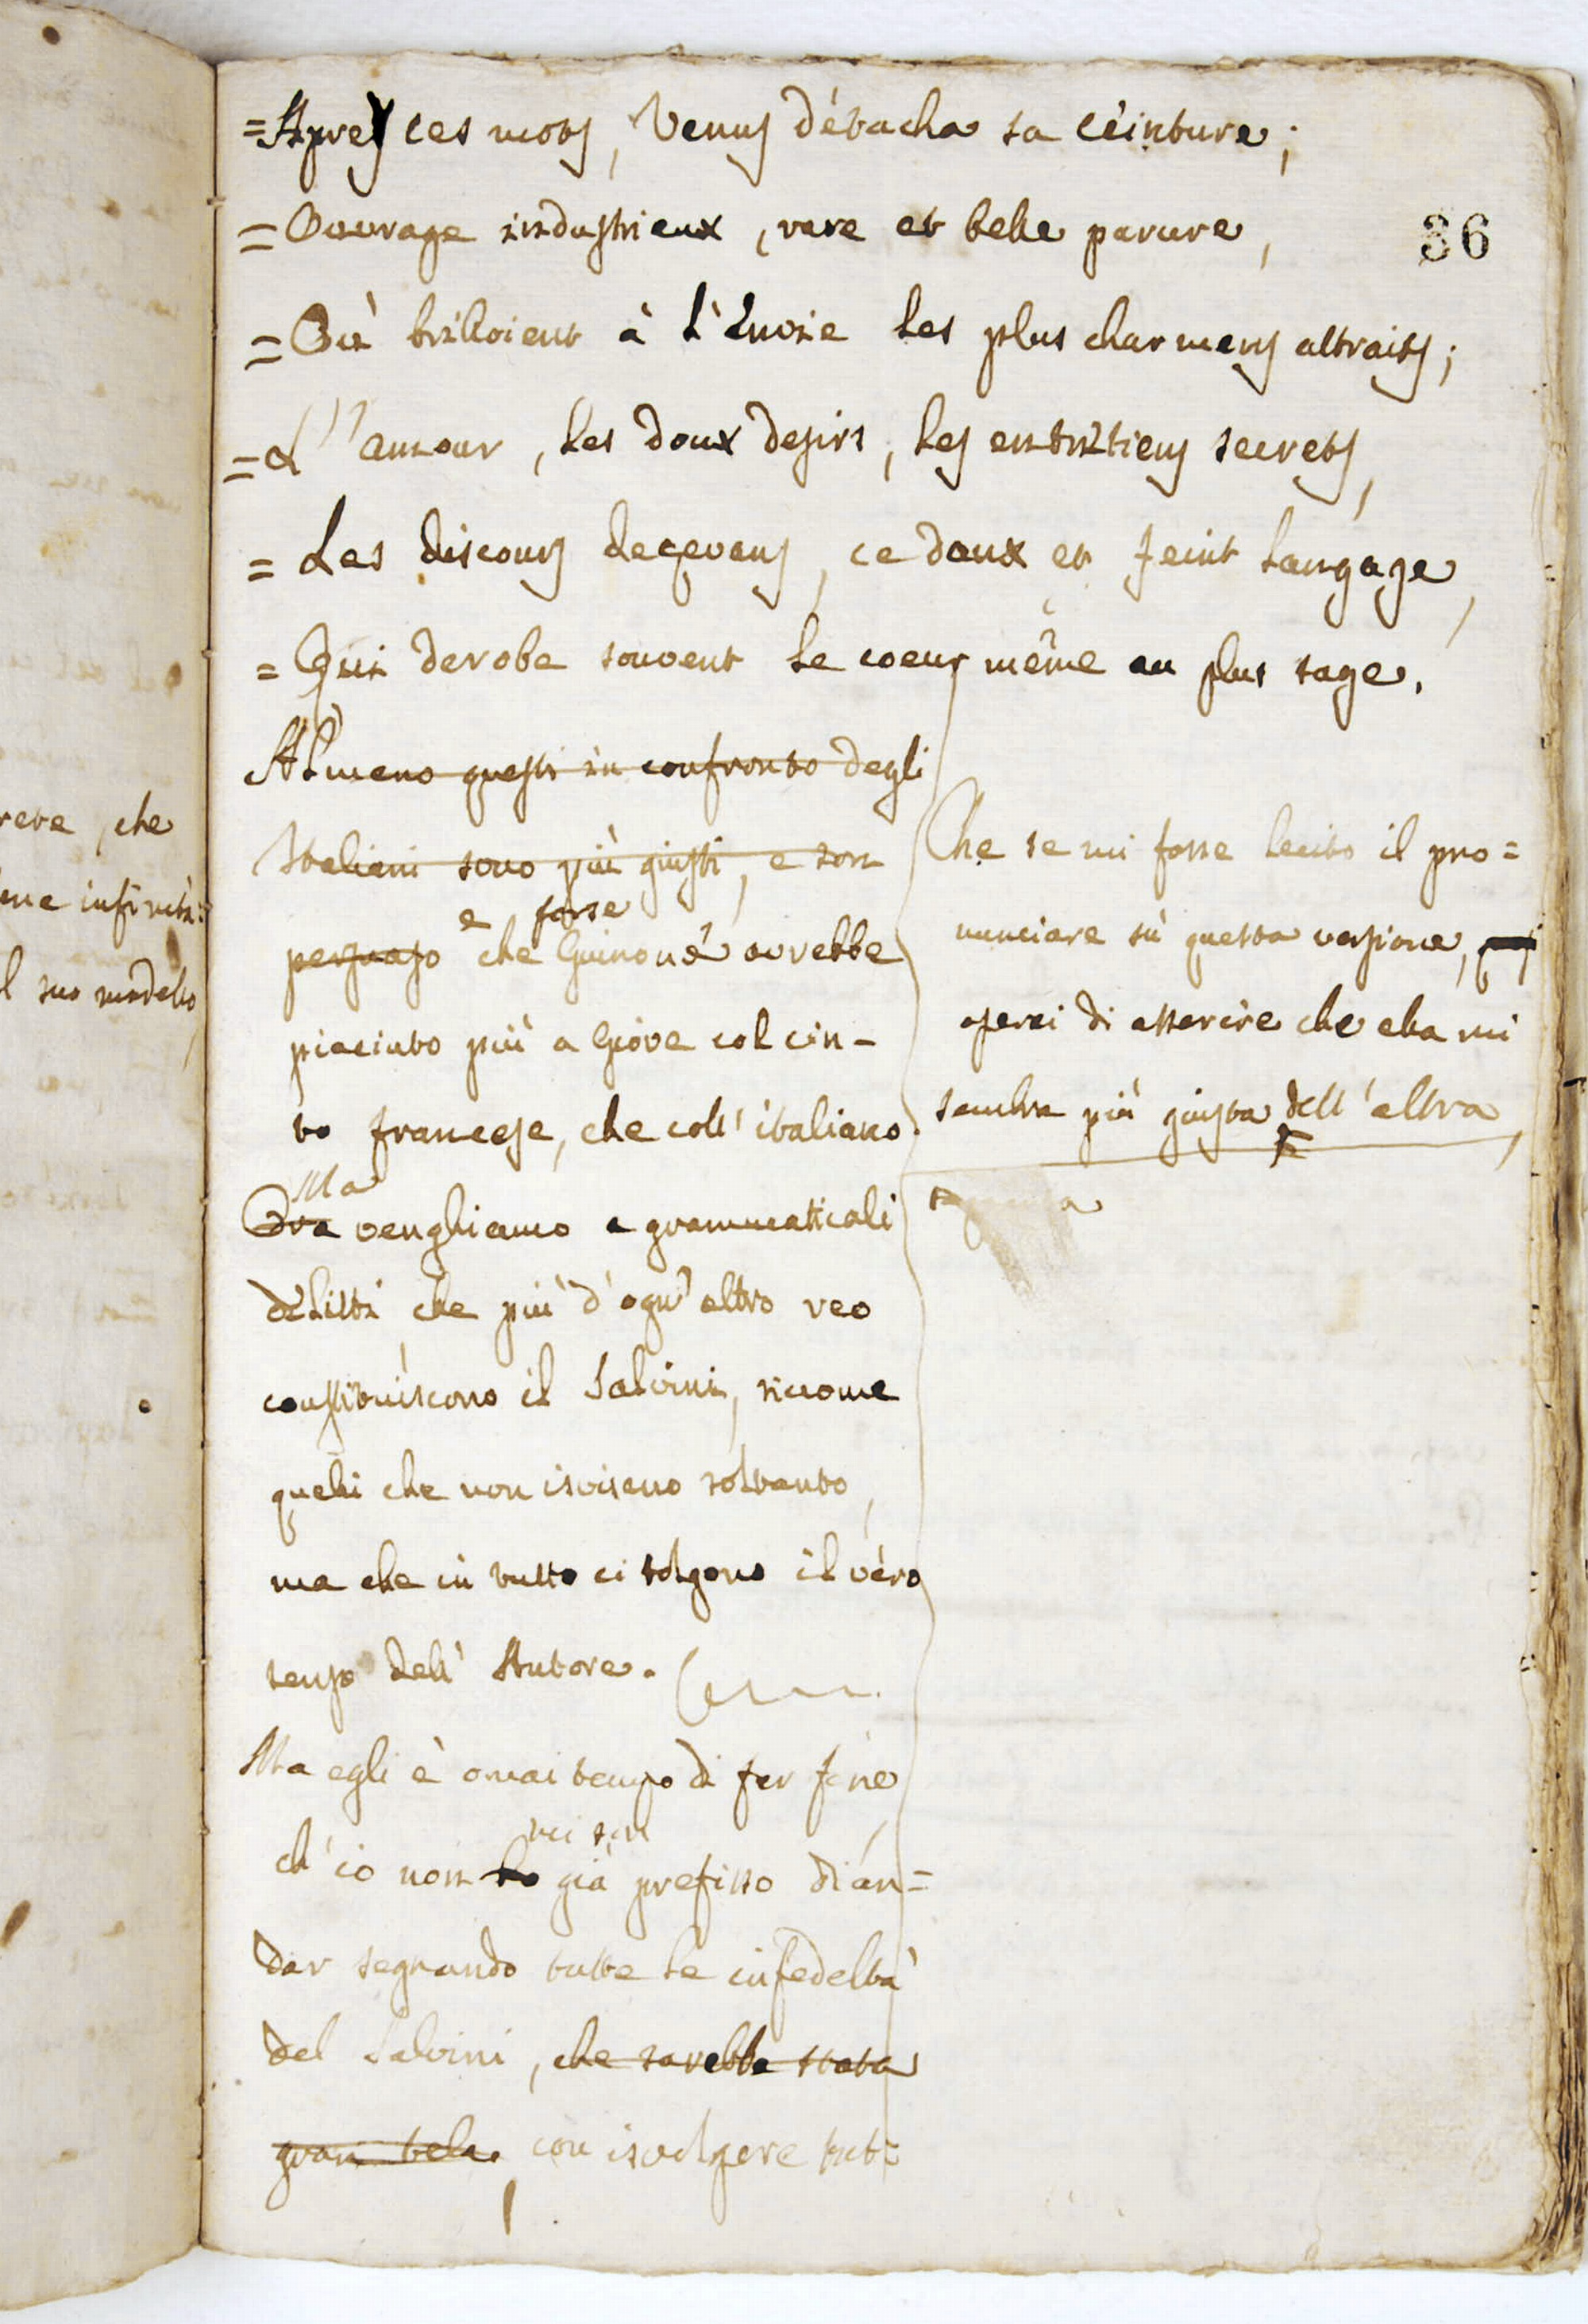 =Apres ces mots, Venus détacha sa céinture;
=Ouvrage industrieux, rare et belle parure,
36
=Où brilloient à l'Envie les plus charmens attraits;
=L'amour, les doux desirs, les entretiens secrets,
=Les discours deçevens, ce doux et feint langage,
=Qui derobe souvent le coeur même au plus sage.
Almeno questi in confronto degli
Italiani sono più giusti, e son
e forse
persuaso che Giunone avrebbe
piaciuto più a Giove col cin-
to francese, che coll'italiano.
Ma
Ora venghiamo a grammaticali
delitti che più d'ogn'altro reo
constituiscono il Salvini, siccome
quelli che non isvisano soltanto,
ma che in tutto ci tolgono il vero
senso dell'Autore.
Ma egli è omai tempo di far fine,
mi son
ch'io non ho già prefisso di an=
dar segnando tutte le infedeltà
del Salvini, che sarebbe stata
gran tela con isvolgere tut-
Che se mi fosse lecito il pro=
nunciare sù questa versione,
oserei di asserire che ella mi
sembra più giusta dell'altra,
reva, che
me infinità:
l suo modello,